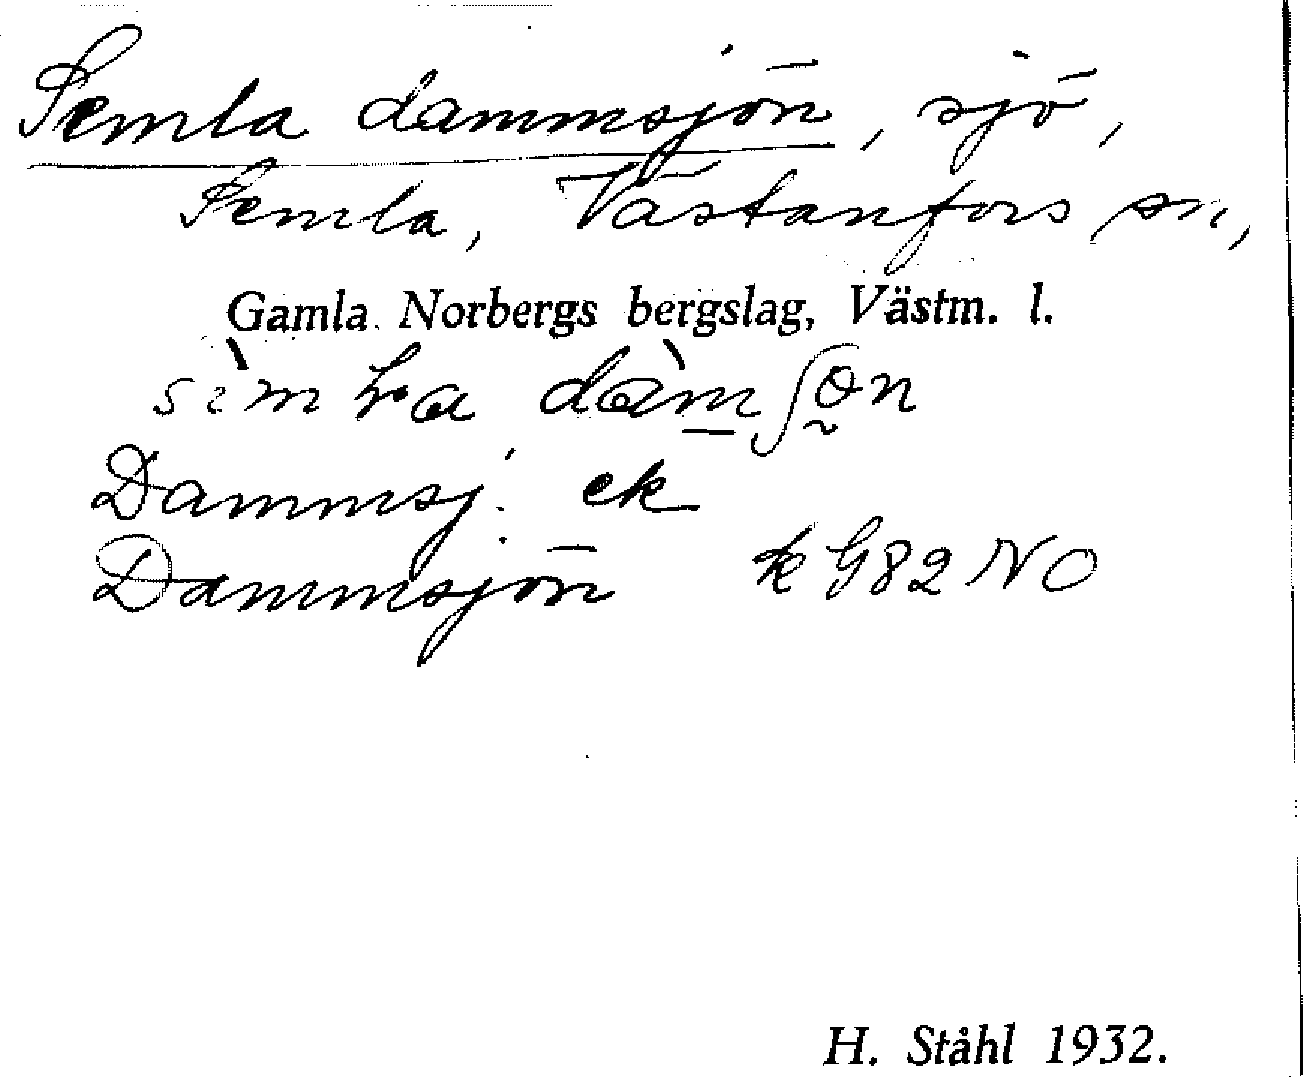 Semla dammsjön, sjö,
Semla, Västanfors sn,
Gamla Norbergs bergslag, Västm. l.
Dammsj. ek
Dammsjön k G82 NO
H. Ståhl 1932.